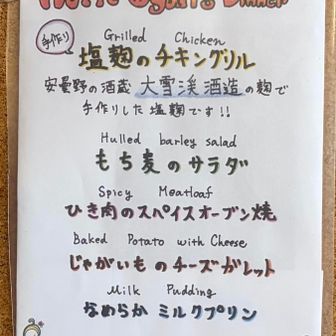 Dinner
手作り
Grilled Chicken
塩麹のチキングリル
安曇野の酒蔵 大雪渓酒造の麹で
手作りした塩麹です!!
Hulled barley salad
もち麦のサラダ
Spicy Meatloaf
ひき肉のスパイスオーブン焼
Baked Potato with Cheese
じゃがいものチーズガレット
Milk Pudding
なめらかミルクプリン